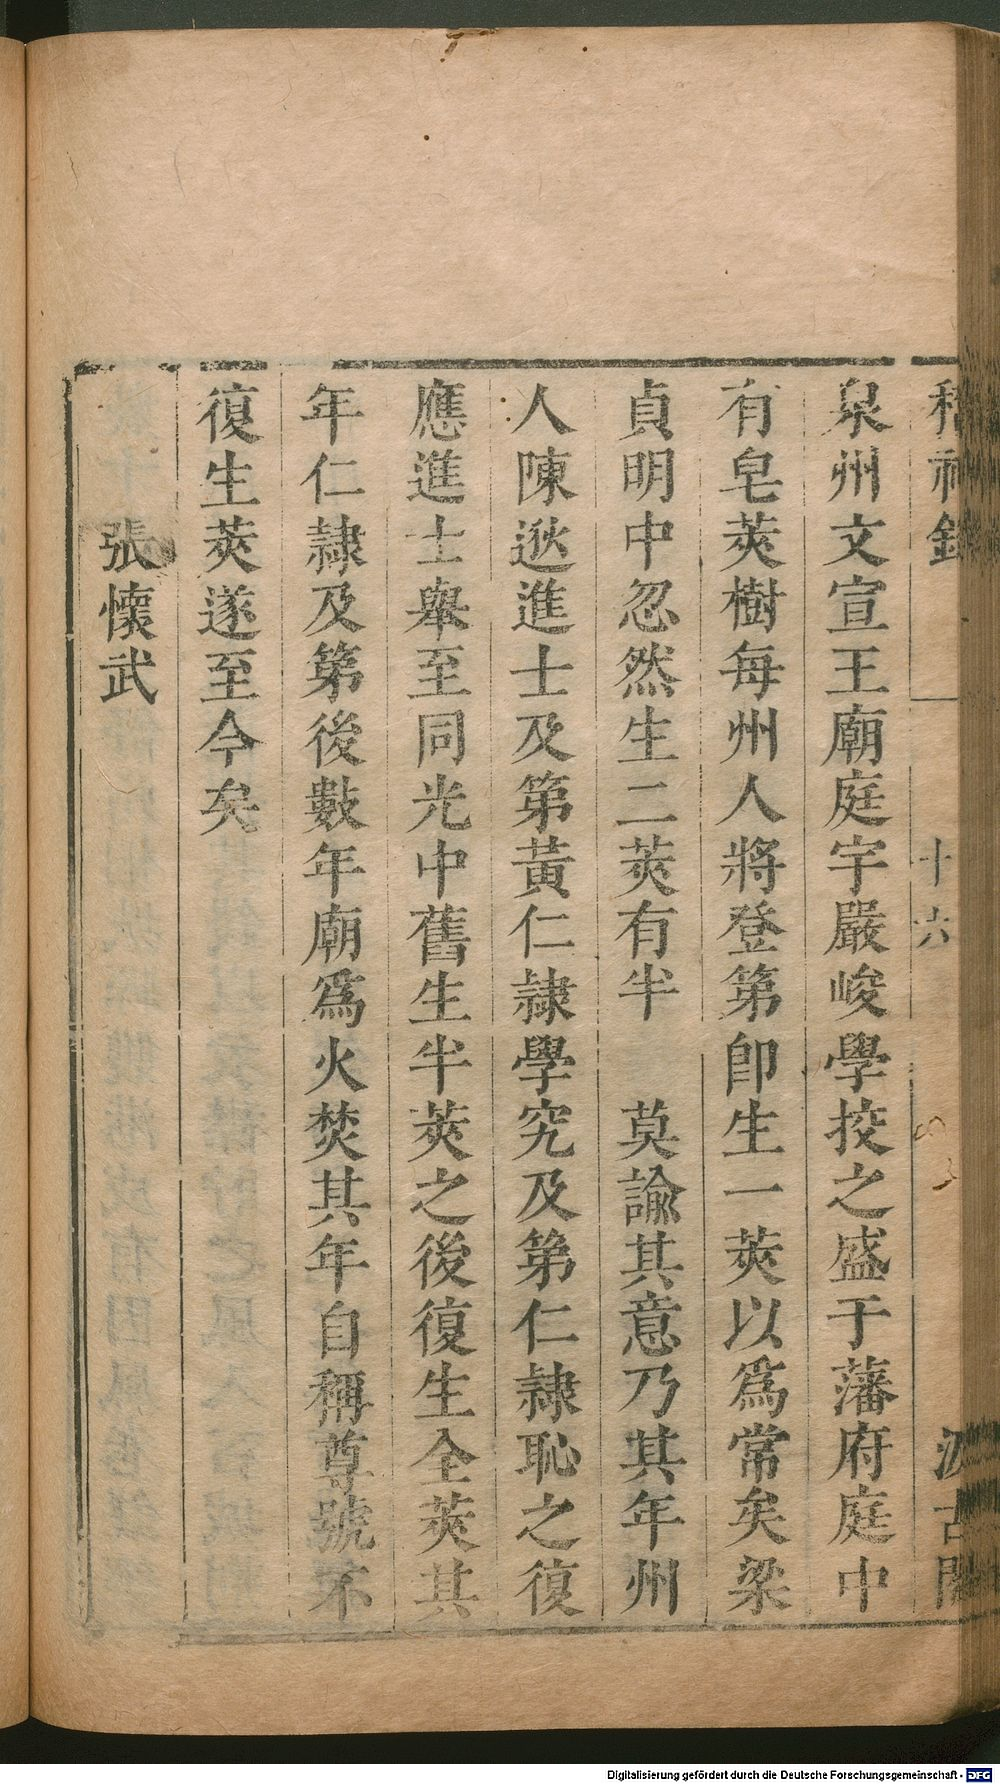 稽神錄 十六 汲古閣
泉州文宣王廟庭宇嚴峻學挍之盛于藩府庭中
有皂莢樹每州人將登第卽生一莢以爲常矣梁
貞明中忽然生二莢有半 莫諭其意乃其年州
人陳逖進士及第黃仁隸學究及第仁隸恥之復
應進士舉至同光中舊生半莢之後復生全莢其
年仁隸及第後數年廟爲火焚其年自稱尊號不
復生莢遂至今矣
張懷武
Digitalisierung gefördert durch die Deutsche Forschungsgemeinschaft - DFG